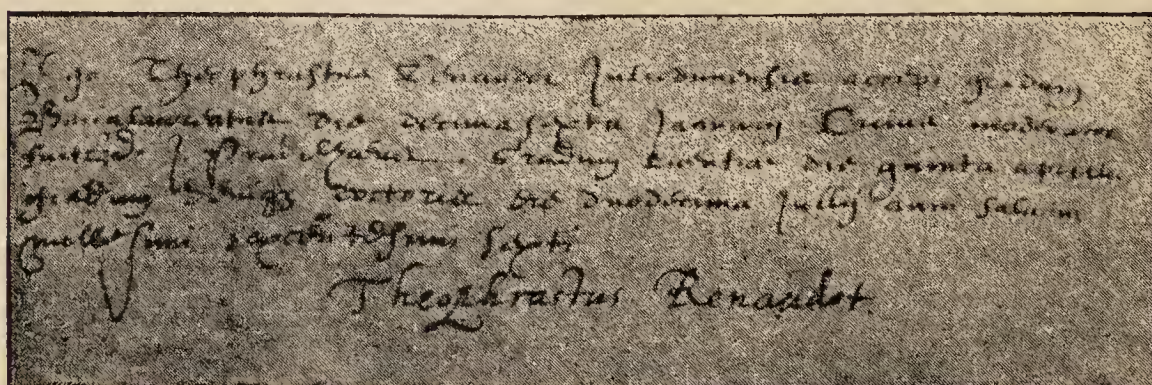 Ego Theophrastus Renaudot Juliodunensis accepi gradum
Baccalaureatus die decima sexta Januarij Cuius moderator
fuit D. gradum licentiae die quinta aprilis
gradum denique doctoris die duodecima Julij anni salutis
millesimi sexcentesimi sexti
Theophrastus Renaudot